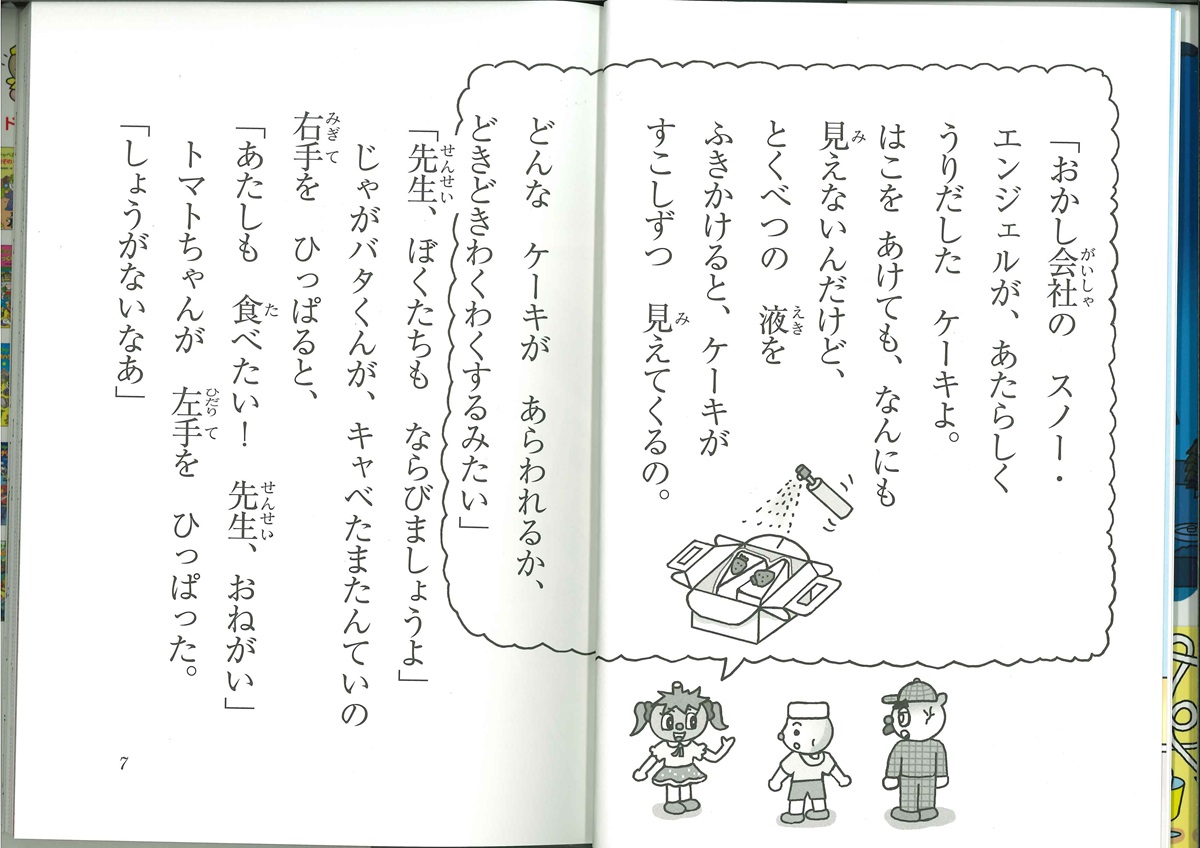 「おかし会社の　スノー・
エンジェルが、あたらしく
うりだした　ケーキよ。
はこを　あけても、なんにも
見えないんだけど、
とくべつの　液を
ふきかけると、ケーキが
すこしずつ　見えてくるの。
どんな　ケーキが　あらわれるか、
どきどきわくわくするみたい」
「先生、ぼくたちも　ならびましょうよ」
じゃがバタくんが、キャベたまたんていの
右手を　ひっぱると、
「あたしも　食べたい！　先生、おねがい」
トマトちゃんが　左手を　ひっぱった。
「しょうがないなあ」
7